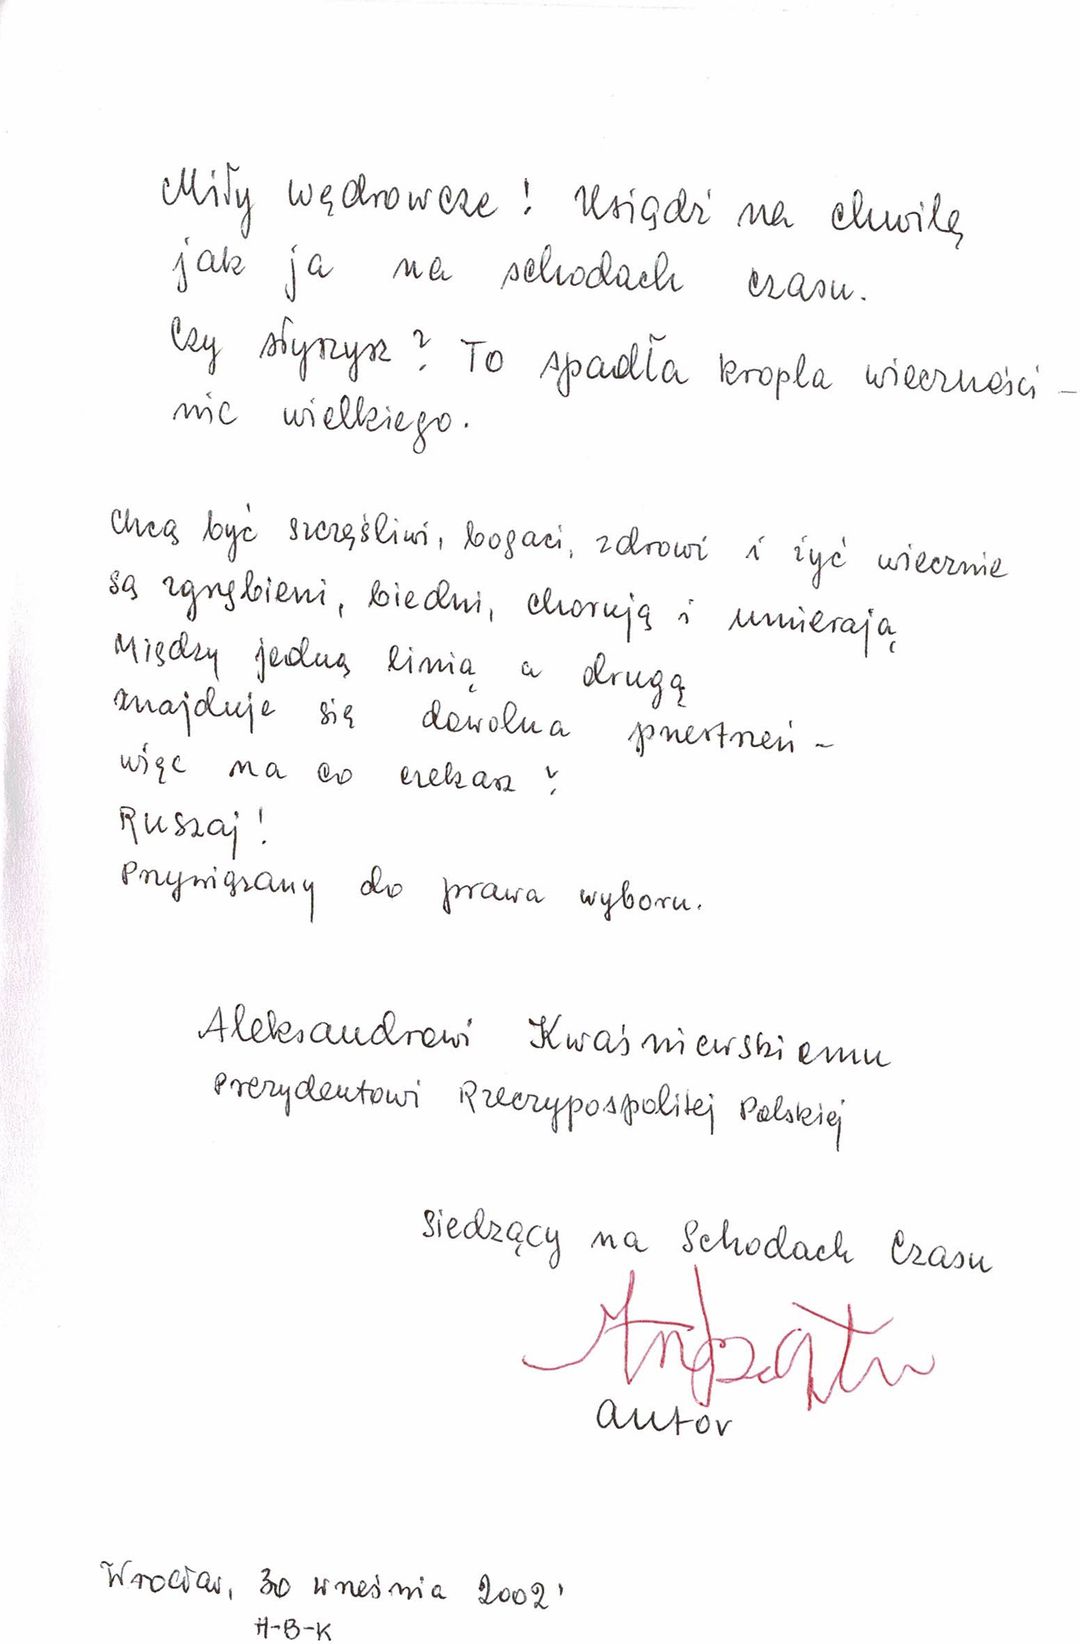 Miły wędrowcze! Usiądź na chwilę
jak ja na schodach czasu.
Czy słyszysz? To spadła kropla wieczności -
nic wielkiego.
Chcą być szczęśliwi, bogaci, zdrowi i żyć wiecznie
są zgnębieni, biedni, chorują i umierają
Między jedną linią a drugą
znajduje się dowolna przestrzeń -
więc na co czekasz?
Ruszaj!
Przywiązany do prawa wyboru.
Aleksandrowi Kwaśniewskiemu
Prezydentowi Rzeczypospolitej Polskiej
Siedzący na Schodach Czasu
autor
Wrocław, 30 września 2002'
H-B-K